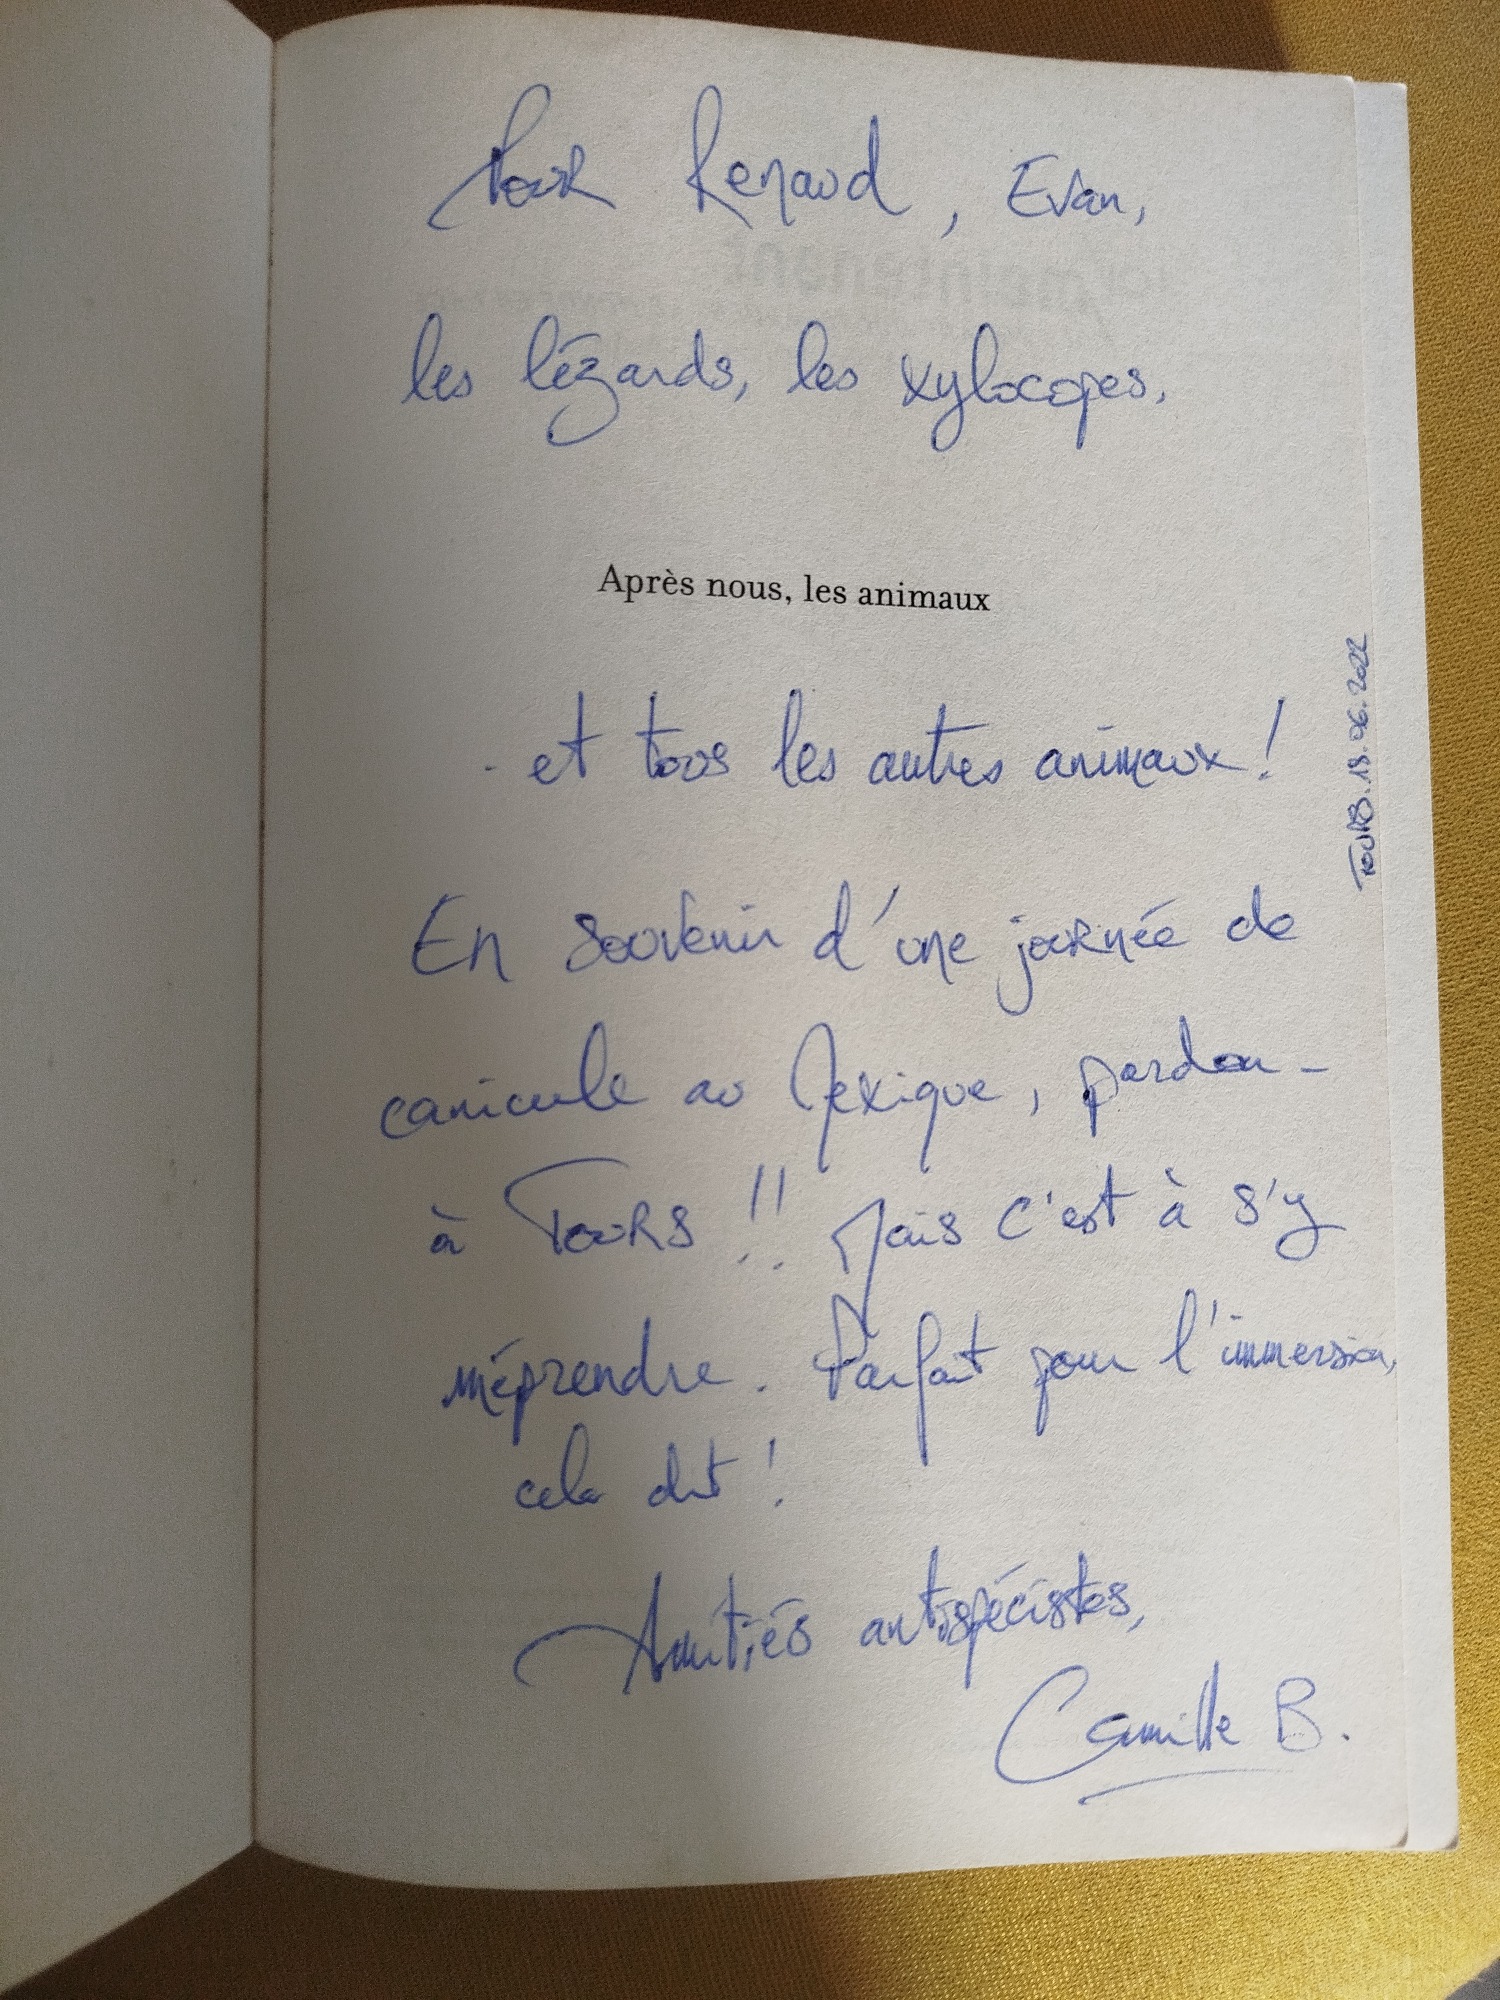 Pour Renaud, Evan,
les lézards, les xylocopes,
Après nous, les animaux
- et tous les autres animaux !
En souvenir d'une journée de
canicule au Mexique, pardon -
à Tours !! Mais c'est à s'y
méprendre. Parfait pour l'immersion,
cela dit !
Amitiés antispécistes,
Camille B.
TOURS. 18.06.2022